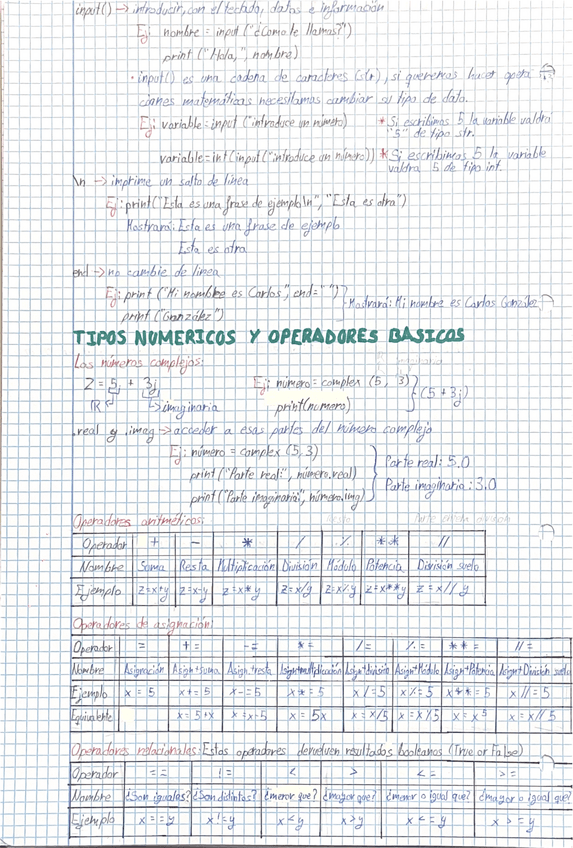 input() → introducir, con el teclado, datos e información
Ej: nombre = input ("¿Como te llamas?")
print ("Hola,", nombre)
· input() es una cadena de caracteres (str), si queremos hacer opera
ciones matemáticas necesitamos cambiar su tipo de dato.
Ej: variable = input ("introduce un número) * Si escribimos 5 la variable valdrá
"5" de tipo str.
variable = int(input("introduce un número")) * Si escribimos 5 la variable
valdrá 5 de tipo int.
\n → imprime un salto de línea
Ej: print("Esta es una frase de ejemplo\n", "Esta es otra")
Mostrará: Esta es una frase de ejemplo
Esta es otra
end → no cambie de linea
Ej: print ("Mi nombre es Carlos", end=" ")
print ("González") Mostrará: Mi nombre es Carlos González
TIPOS NUMERICOS Y OPERADORES BASICOS
Los números complejos:
Z = 5 + 3j Ej: número = complex (5, 3)
R → imaginaria print(numero) (5+3j)
.real y .imag → acceder a esas partes del número complejo
Ej: número = complex (5,3)
print ("Parte real:", número.real) Parte real: 5.0
print ("Parte imaginaria:", número.img) Parte imaginaria: 3.0
Operadores aritméticos:
Operador + - * / % ** //
Nombre Suma Resta Multiplicación División Módulo Potencia División suelo
Ejemplo z=x+y z=x-y z=x*y z=x/y z=x%y z=x**y z = x//y
Operadores de asignación:
Operador = += -= *= /= %= **= //=
Nombre Asignación Asign+suma Asign.+resta Asign+multiplicación Asign+división Asign+Módulo Asign+Potencia Asign+División suelo
Ejemplo x = 5 x+=5 x-=5 x*=5 x/=5 x%=5 x**=5 x//=5
Equivalente x=5+x x=x-5 x = 5x x=x/5 x=x%5 x=x⁵ x=x//5
Operadores relacionales: Estos operadores devuelven resultados booleanos (True or False)
Operador == != < > <= >=
Nombre ¿Son iguales? ¿Son distintos? ¿menor que? ¿mayor que? ¿menor o igual que? ¿mayor o igual que?
Ejemplo x==y x!=y x<y x>y x<=y x>=y